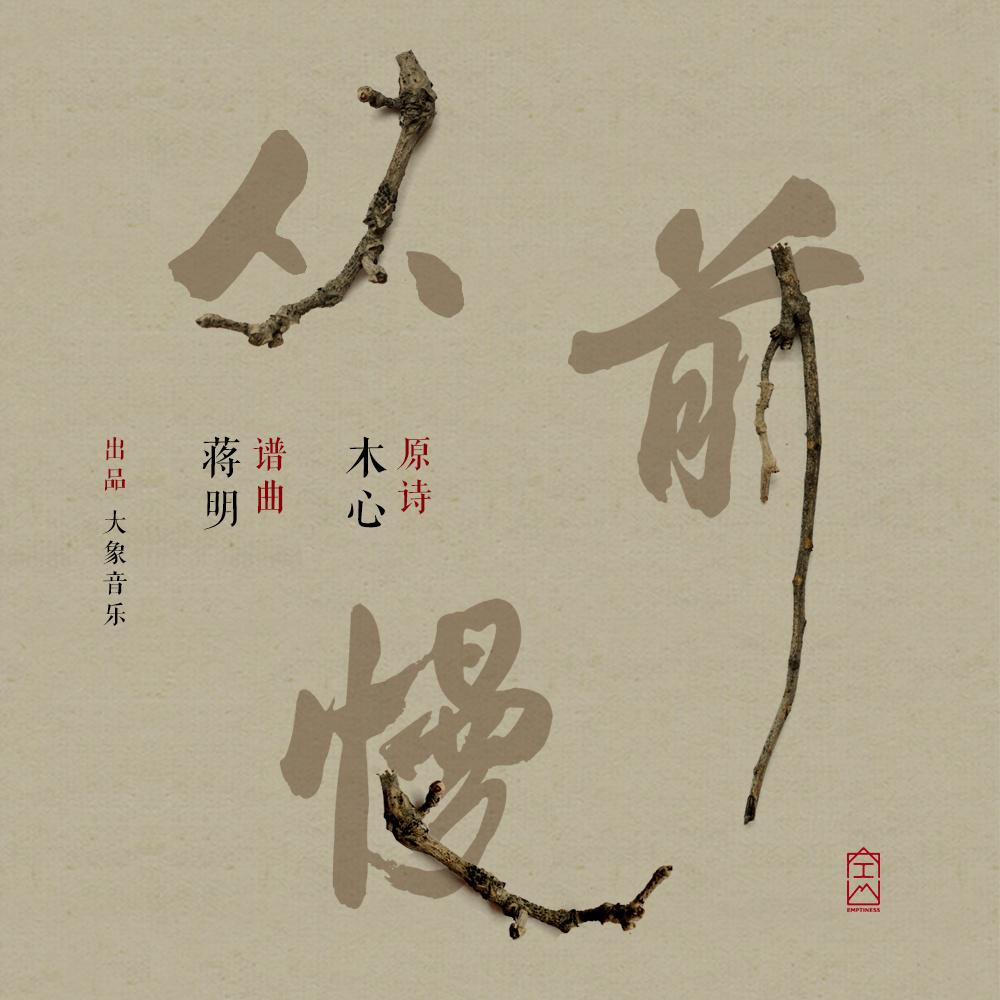 从前
慢
原诗
木心
谱曲
蒋明
出品 大象音乐
EMPTINESS